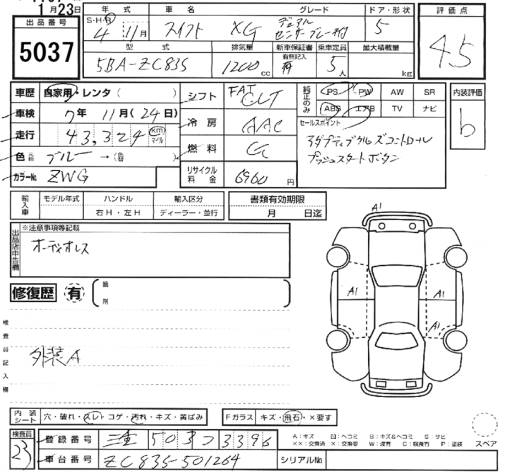 1月23日
出品番号
5037
年式 車名 グレード ドア・形状 評価点
S・H・R 4年 11月 スイフト XG デュアルセンサーブレーキ付 5
4.5
型式 排気量 新車保証書 乗車定員 最大積載量
有無記入
5BA-ZC83S 1200cc 有 5人 kg
車歴 自家用・レンタ( )
シフト FAT CVT
純正のみ PS PW AW SR
ABS エアB TV ナビ
内装評価
b
車検 7年 11月(24日)
冷房 AAC
セールスポイント
走行 43,324 km マイル
アダプティブクルーズコントロール
プッシュスタートボタン
色 ブルー→( )
燃料 G
カラーNo. ZWG
リサイクル料金 6960円
輸入車 モデル年式 ハンドル 輸入区分 書類有効期限
右H・左H ディーラー・並行 月 日迄
※注意事項等記載
オーディオレス
修復歴 有
A1
A1
A1
A1
検査員記入欄
外装A
内装シート 穴・破れ・スレ・コゲ・汚れ・キズ・黄ばみ
Fガラス キズ・飛石・×要す
検査員
23
登録番号 三重 503 ラ 3396
スペア
車台番号 ZC83S-501264
シリアルNo.